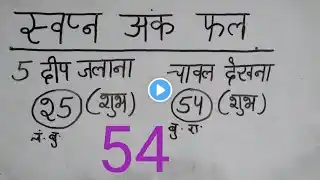 स्वप्न अंक फल
5 दीप जलाना
चावल देखना
25 (शुभ)
54 (शुभ)
चं. बु.
बु. रा.
54